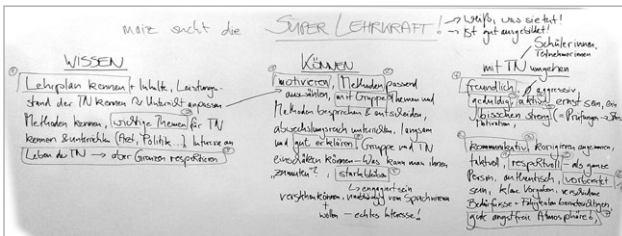 maiz sucht die SUPER LEHRKRAFT!
→ weiß, was sie tut!
→ ist gut ausgebildet!
WISSEN
Lehrplan kennen + Inhalte, Leistungs-
stand der TN kennen → Unterricht anpassen
Methoden kennen, wichtige Themen für TN
kennen & unterrichten (Asyl, Politik...)
Leben der TN → aber Grenzen respektieren
KÖNNEN
motivieren, Methoden passend
auswählen, mit Gruppe Themen und
Methoden besprechen & entscheiden,
abwechslungsreich unterrichten, langsam
und gut erklären, Gruppe und TN
einschätzen können – Was kann man ihnen
zumuten?,
→ engagiert sein
verstehen können, unabhängig vom Sprachniveau
+
wollen – echtes Interesse!
Schülerinnen,
Teilnehmerinnen
mit TN umgehen
freundlich, aggressiv
geduldig, aktiv, ernst sein, ein
bisschen streng (= Prüfungen →
Motivation,
kommunikativ, korrigieren angenommen,
taktvoll, respektvoll – als ganze
Person, authentisch, vorbereitet
sein, klare Vorgaben, verschiedene
Bedürfnisse + Fähigkeiten
gute angstfreie Atmosphäre!,